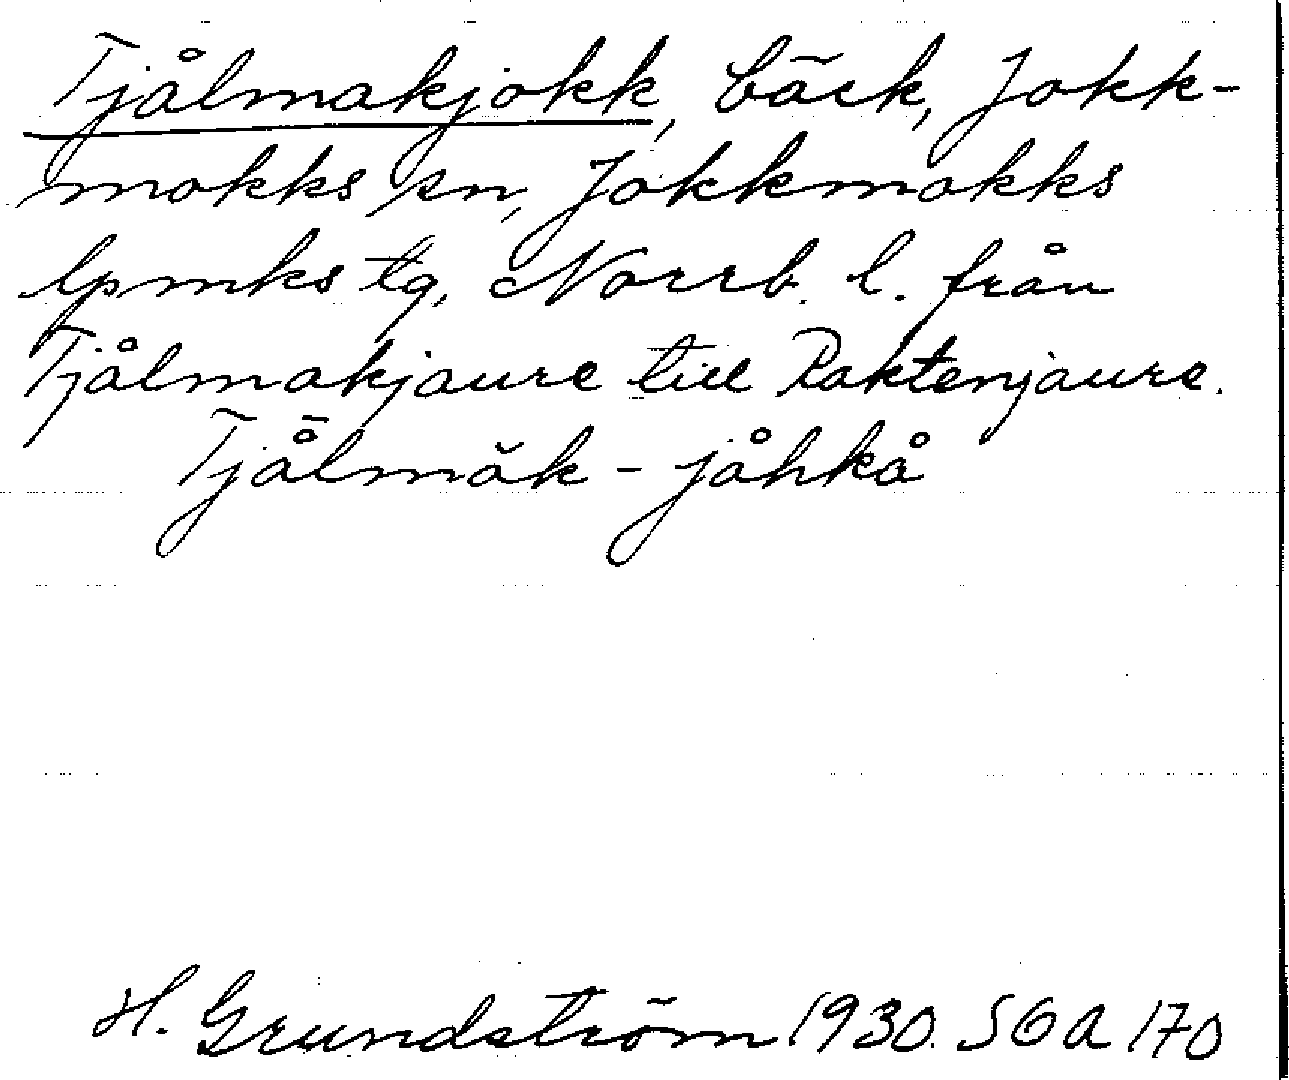 Tjålmakjokk, bäck, Jokk-
mokks sn, Jokkmokks
lpmks tg, Norrb. l. från
Tjålmakjaure till Raktenjaure.
Tjå̄lmăk - jåhkå
H. Grundström 1930. SOA 170